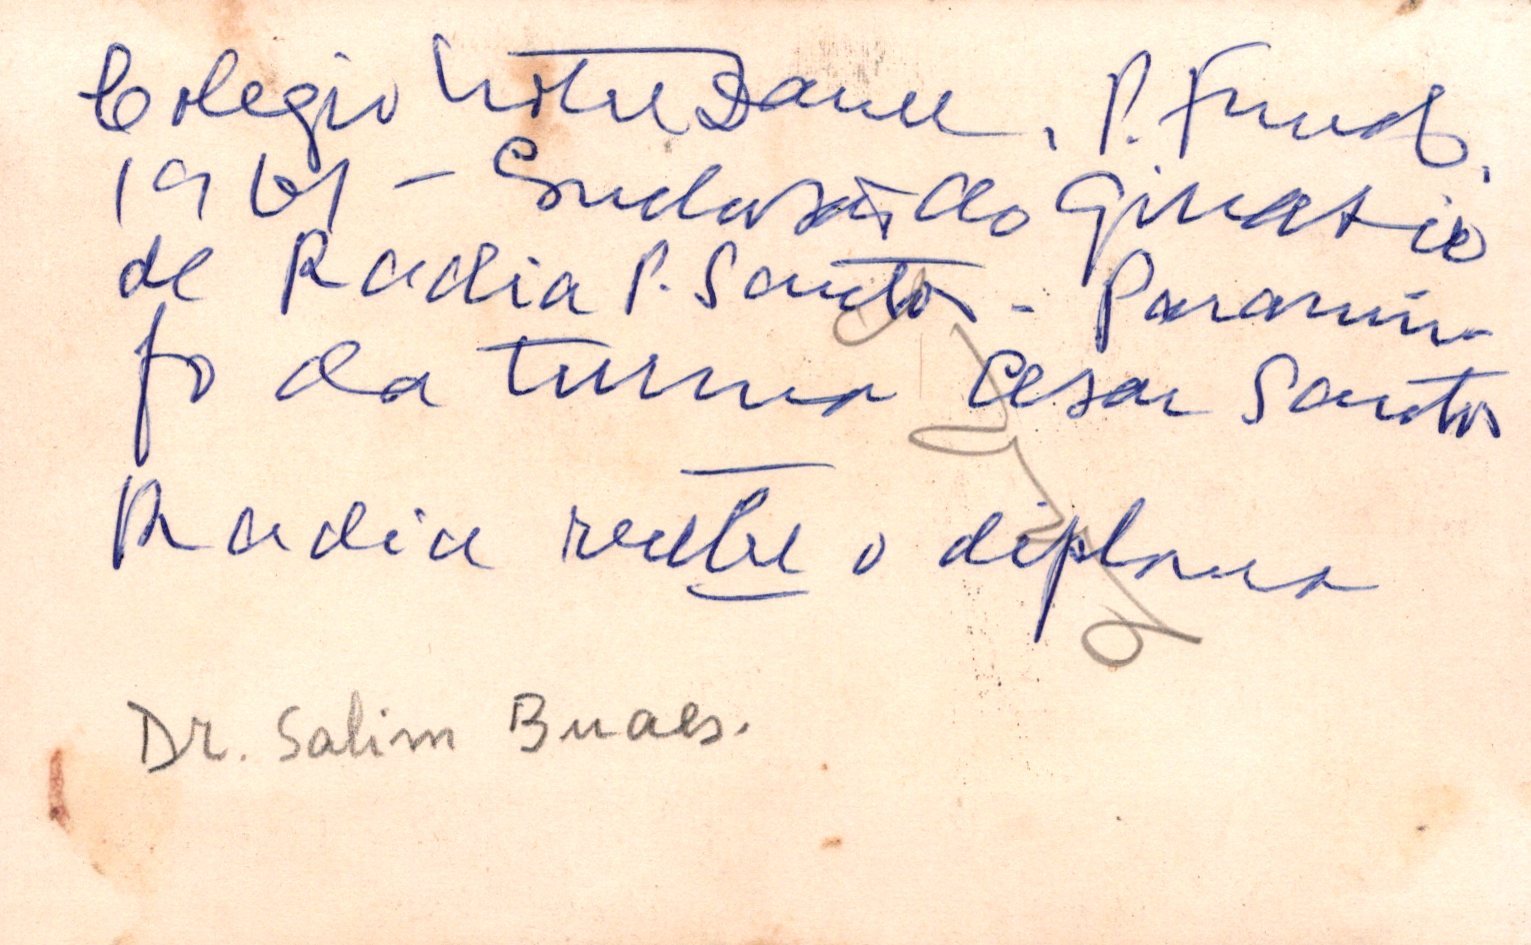 Colegio Notre Dame, P. Fundo,
1961 - do Ginasio
de Radia P. Santos - Paranin-
fo da turma Cesar Santos
Radia recebe o diploma
Dr. Salim Buaes.